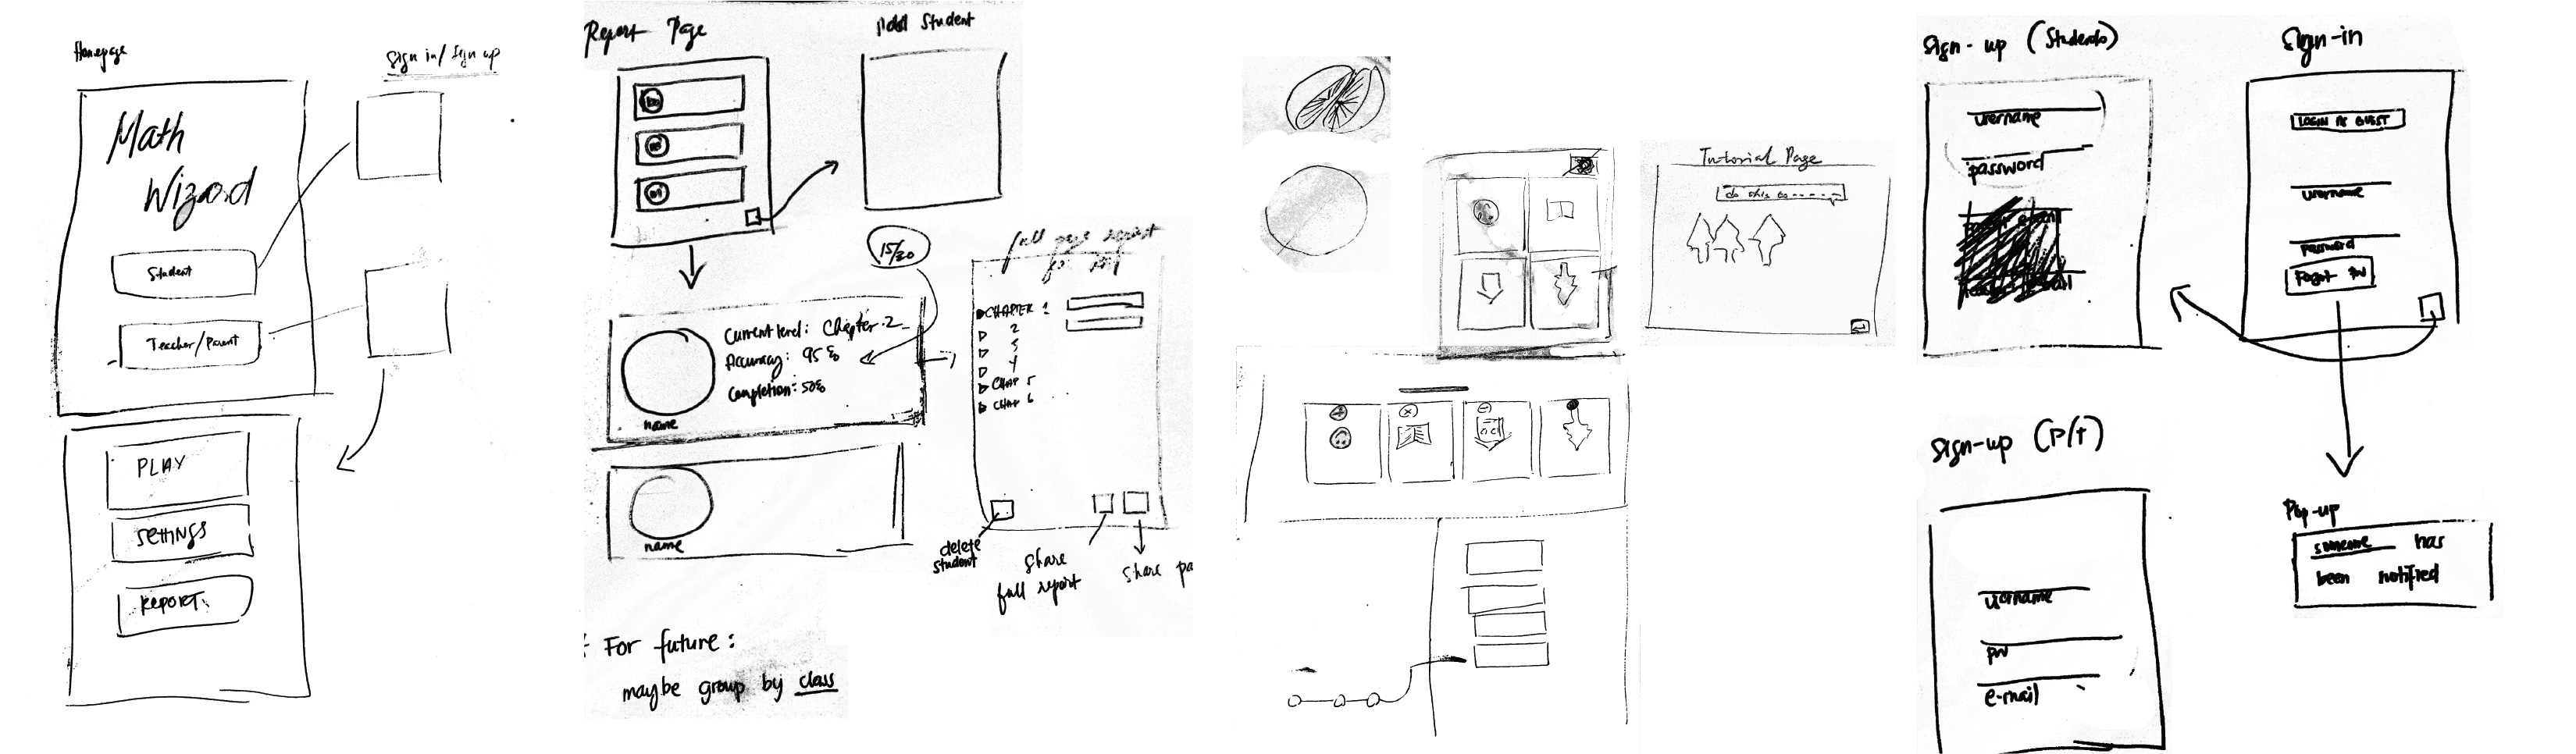 Homepage
Sign in/ Sign up
Math
Wizard
Student
Teacher/Parent
PLAY
SETTINGS
REPORT
Report Page
Add Student
15/30
full page report
Current level: Chapter 2
Accuracy: 95%
Completion: 50%
name
name
CHAPTER 1
2
3
4
CHAP 5
CHAP 6
delete
student
share
full report
share pa
For future:
maybe group by class
Tutorial Page
do this to -----
Sign-up (Students)
username
password
Sign-in
LOGIN AS GUEST
username
password
Forgot PW
Sign-up (P/T)
username
pw
e-mail
Pop-up
someone has
been notified